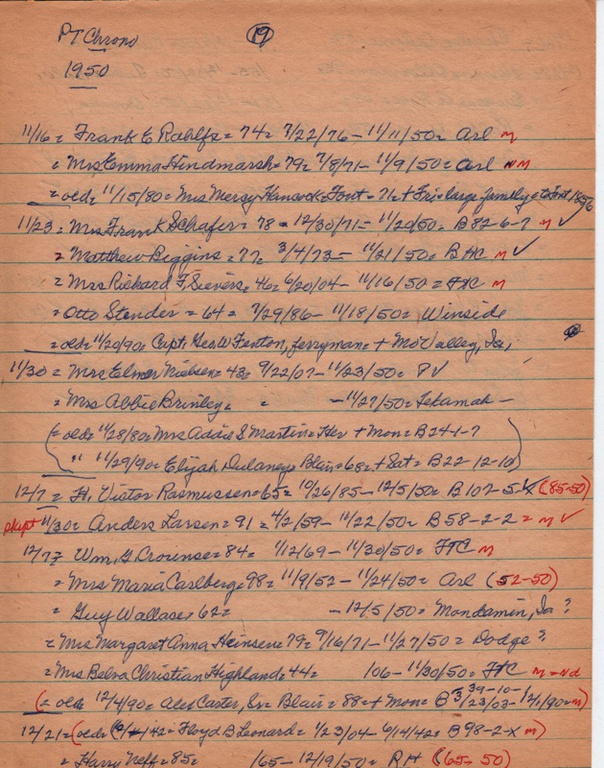 PT Chrono 19
1950
11/16 = Frank E Rahlfs = 74 = 7/22/76 - 11/11/50 = Arl M
= Mrs Emma Hindmarsh = 79 = 7/8/71 - 11/9/50 = Arl NM
= old = 11/15/80 = Mrs Mercy Hancock = Font = 71 + Fri = large family = to Font 1856
11/23 = Mrs Frank Schafer = 78 = 12/30/71 - 11/20/50 = B 82-6-7 M ✓
= Matthew Biggins = 77 = 3/4/73 - 11/21/50 = B HC M ✓
= Mrs Richard F. Sievers = 46 = 6/20/04 - 11/16/50 = FTC M
= Otto Stender = 64 = 7/29/86 - 11/18/50 = Winside
= old = 11/20/90 = Capt. Geo W Fenton, ferryman = + Mo Valley, Ia,
11/30 = Mrs Elmer Nielsen = 43 = 9/22/07 - 11/23/50 = PV
= Mrs Abbie Brinley = = - 11/27/50 = Tekamah -
(= old = 11/28/80 = Mrs Addie S Martin = Her + Mon = B 24-1-7
" 11/29/90 = Elijah Dulaney = Blair = 68 = + Sat = B 22-12-10)
12/7 = H. Victor Rasmussen = 65 = 10/26/85 - 12/5/50 = B 107-5-X (85-50)
11/30 = Anders Larsen = 91 = 4/2/59 - 11/22/50 = B 58-2-2 = M ✓
12/7 = Wm. G Crounse = 84 = 1/12/69 - 11/30/50 = FTC M
= Mrs Maria Carlberg = 98 = 11/9/52 - 11/24/50 = Arl (52-50)
= Guy Wallace = 62 = - 12/5/50 = Mondamin, Ia ?
= Mrs Margaret Anna Heinsen = 79 = 9/16/71 - 11/27/50 = Dodge ?
= Mrs Belva Christian Highland = 44 = /06 - 11/30/50 = FTC M = Nd
(= old = 12/4/90 = Alex Carter, Sr = Blair = 88 = + Mon = B 39-10- 3/23/03 - 12/1/90 = M)
12/21 = (old = /42 = Floyd B Leonard = 1/23/04 - 6/14/42 = B 98-2-X M)
= Harry Neff = 85 = /65 - 12/19/50 = RH (65-50)